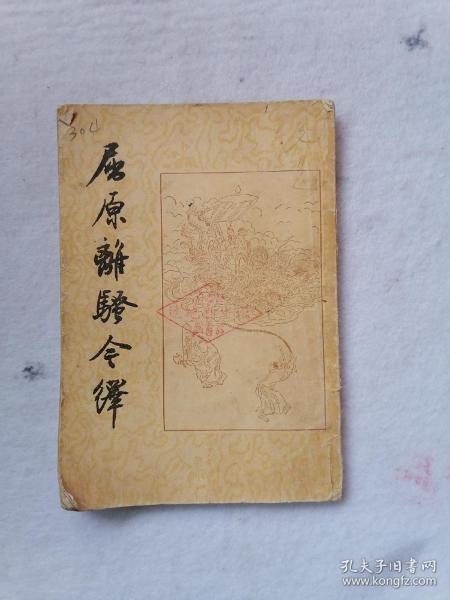 304
屈原離騷今繹
孔夫子旧书网
www.kongfz.com